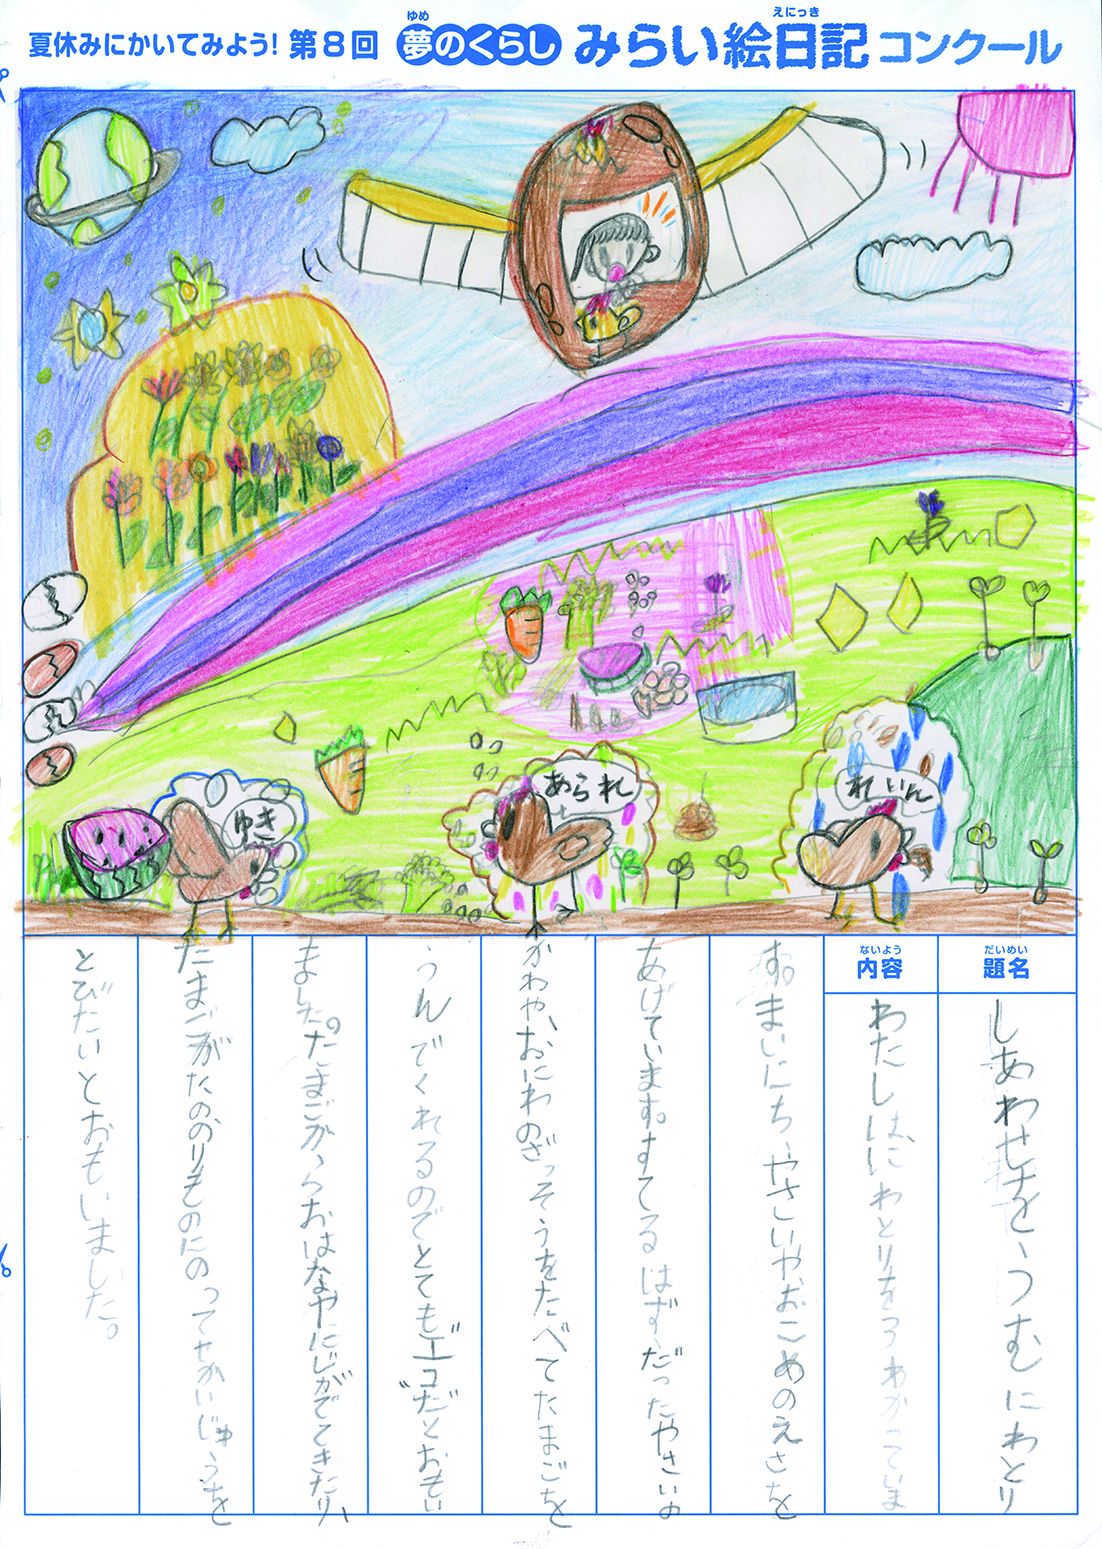 夏休みにかいてみよう! 第8回 夢のくらし みらい絵日記コンクール
ゆめ
えにっき
ゆき
あられ
れいん
だいめい
題名
しあわせを、うむにわとり
ないよう
内容
わたしは、にわとりを3わかっていま
す。まいにち、やさいやおこめのえさを
あげています。すてるはずだったやさいの
かわや、おにわのざっそうをたべてたまごを
うんでくれるのでとてもエコだとおもい
ました。たまごからおはなやにじがでてきたり、
たまごがたののりものにのってせかいじゅうを
とびたいとおもいました。